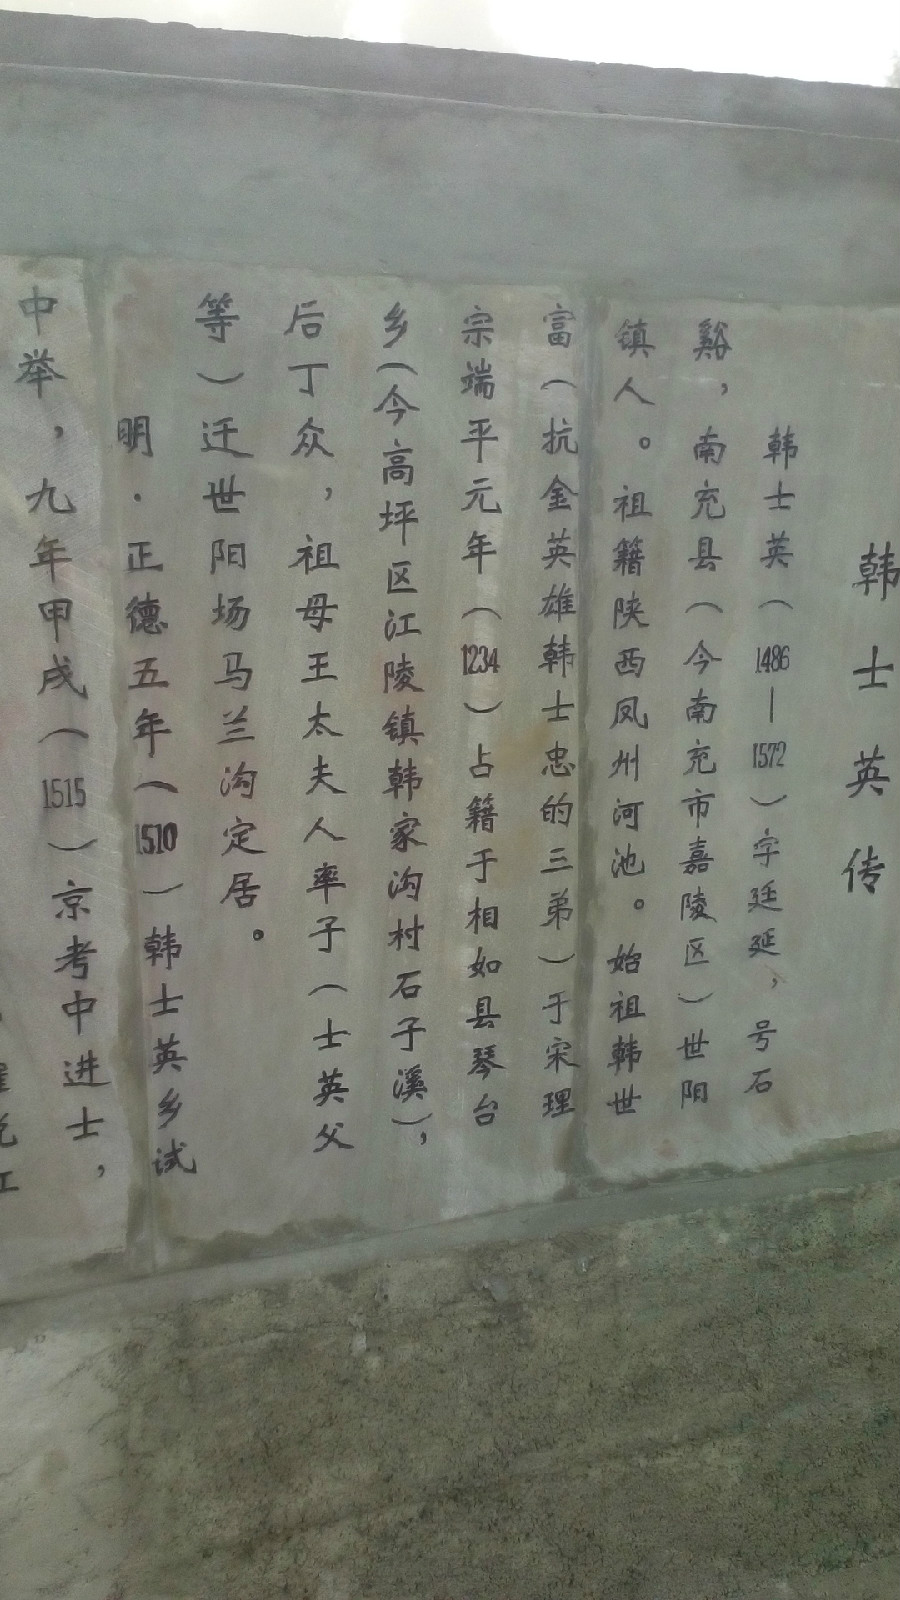 韩士英传
韩士英（1486—1572）字廷延，号石
谿，南充县（今南充市嘉陵区）世阳
镇人。祖籍陕西凤州河池。始祖韩世
富（抗金英雄韩士忠的三弟）于宋理
宗端平元年（1234）占籍于相如县琴台
乡（今高坪区江陵镇韩家沟村石子溪），
后丁众，祖母王太夫人率子（士英父
等）迁世阳场马兰沟定居。
明·正德五年（1510）韩士英乡试
中举，九年甲戌（1515）京考中进士，